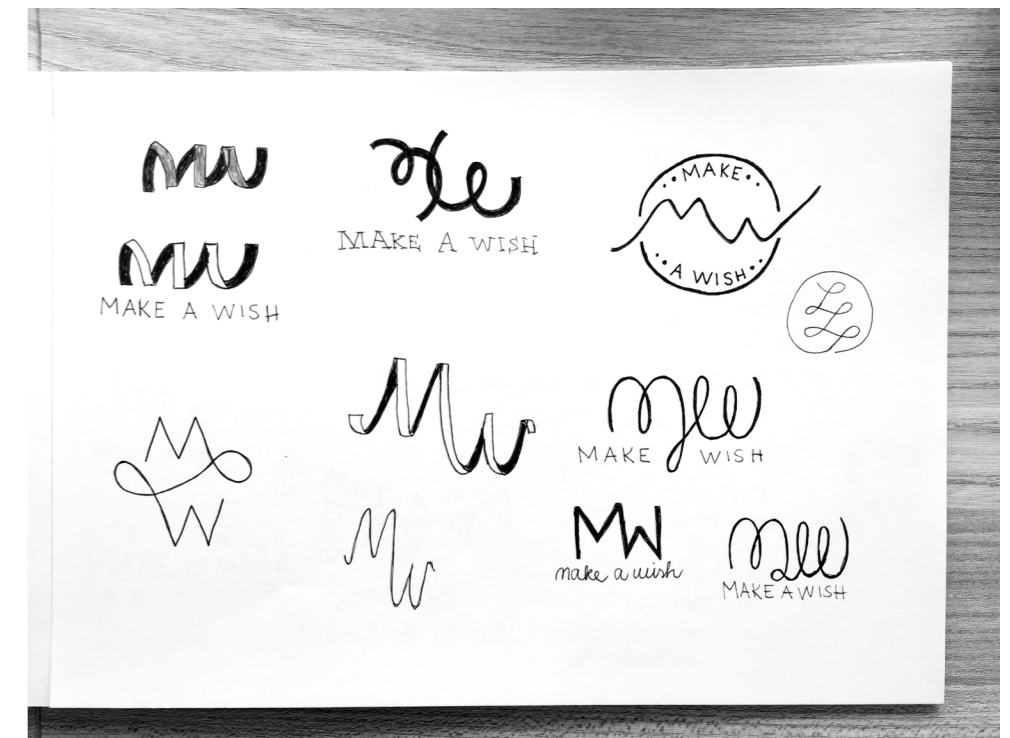 MW
MW
MAKE A WISH
MW
MAKE A WISH
MAKE
MW
A WISH
M
W
MW
MW
MAKE WISH
MW
MW
make a wish
MW
MAKE A WISH